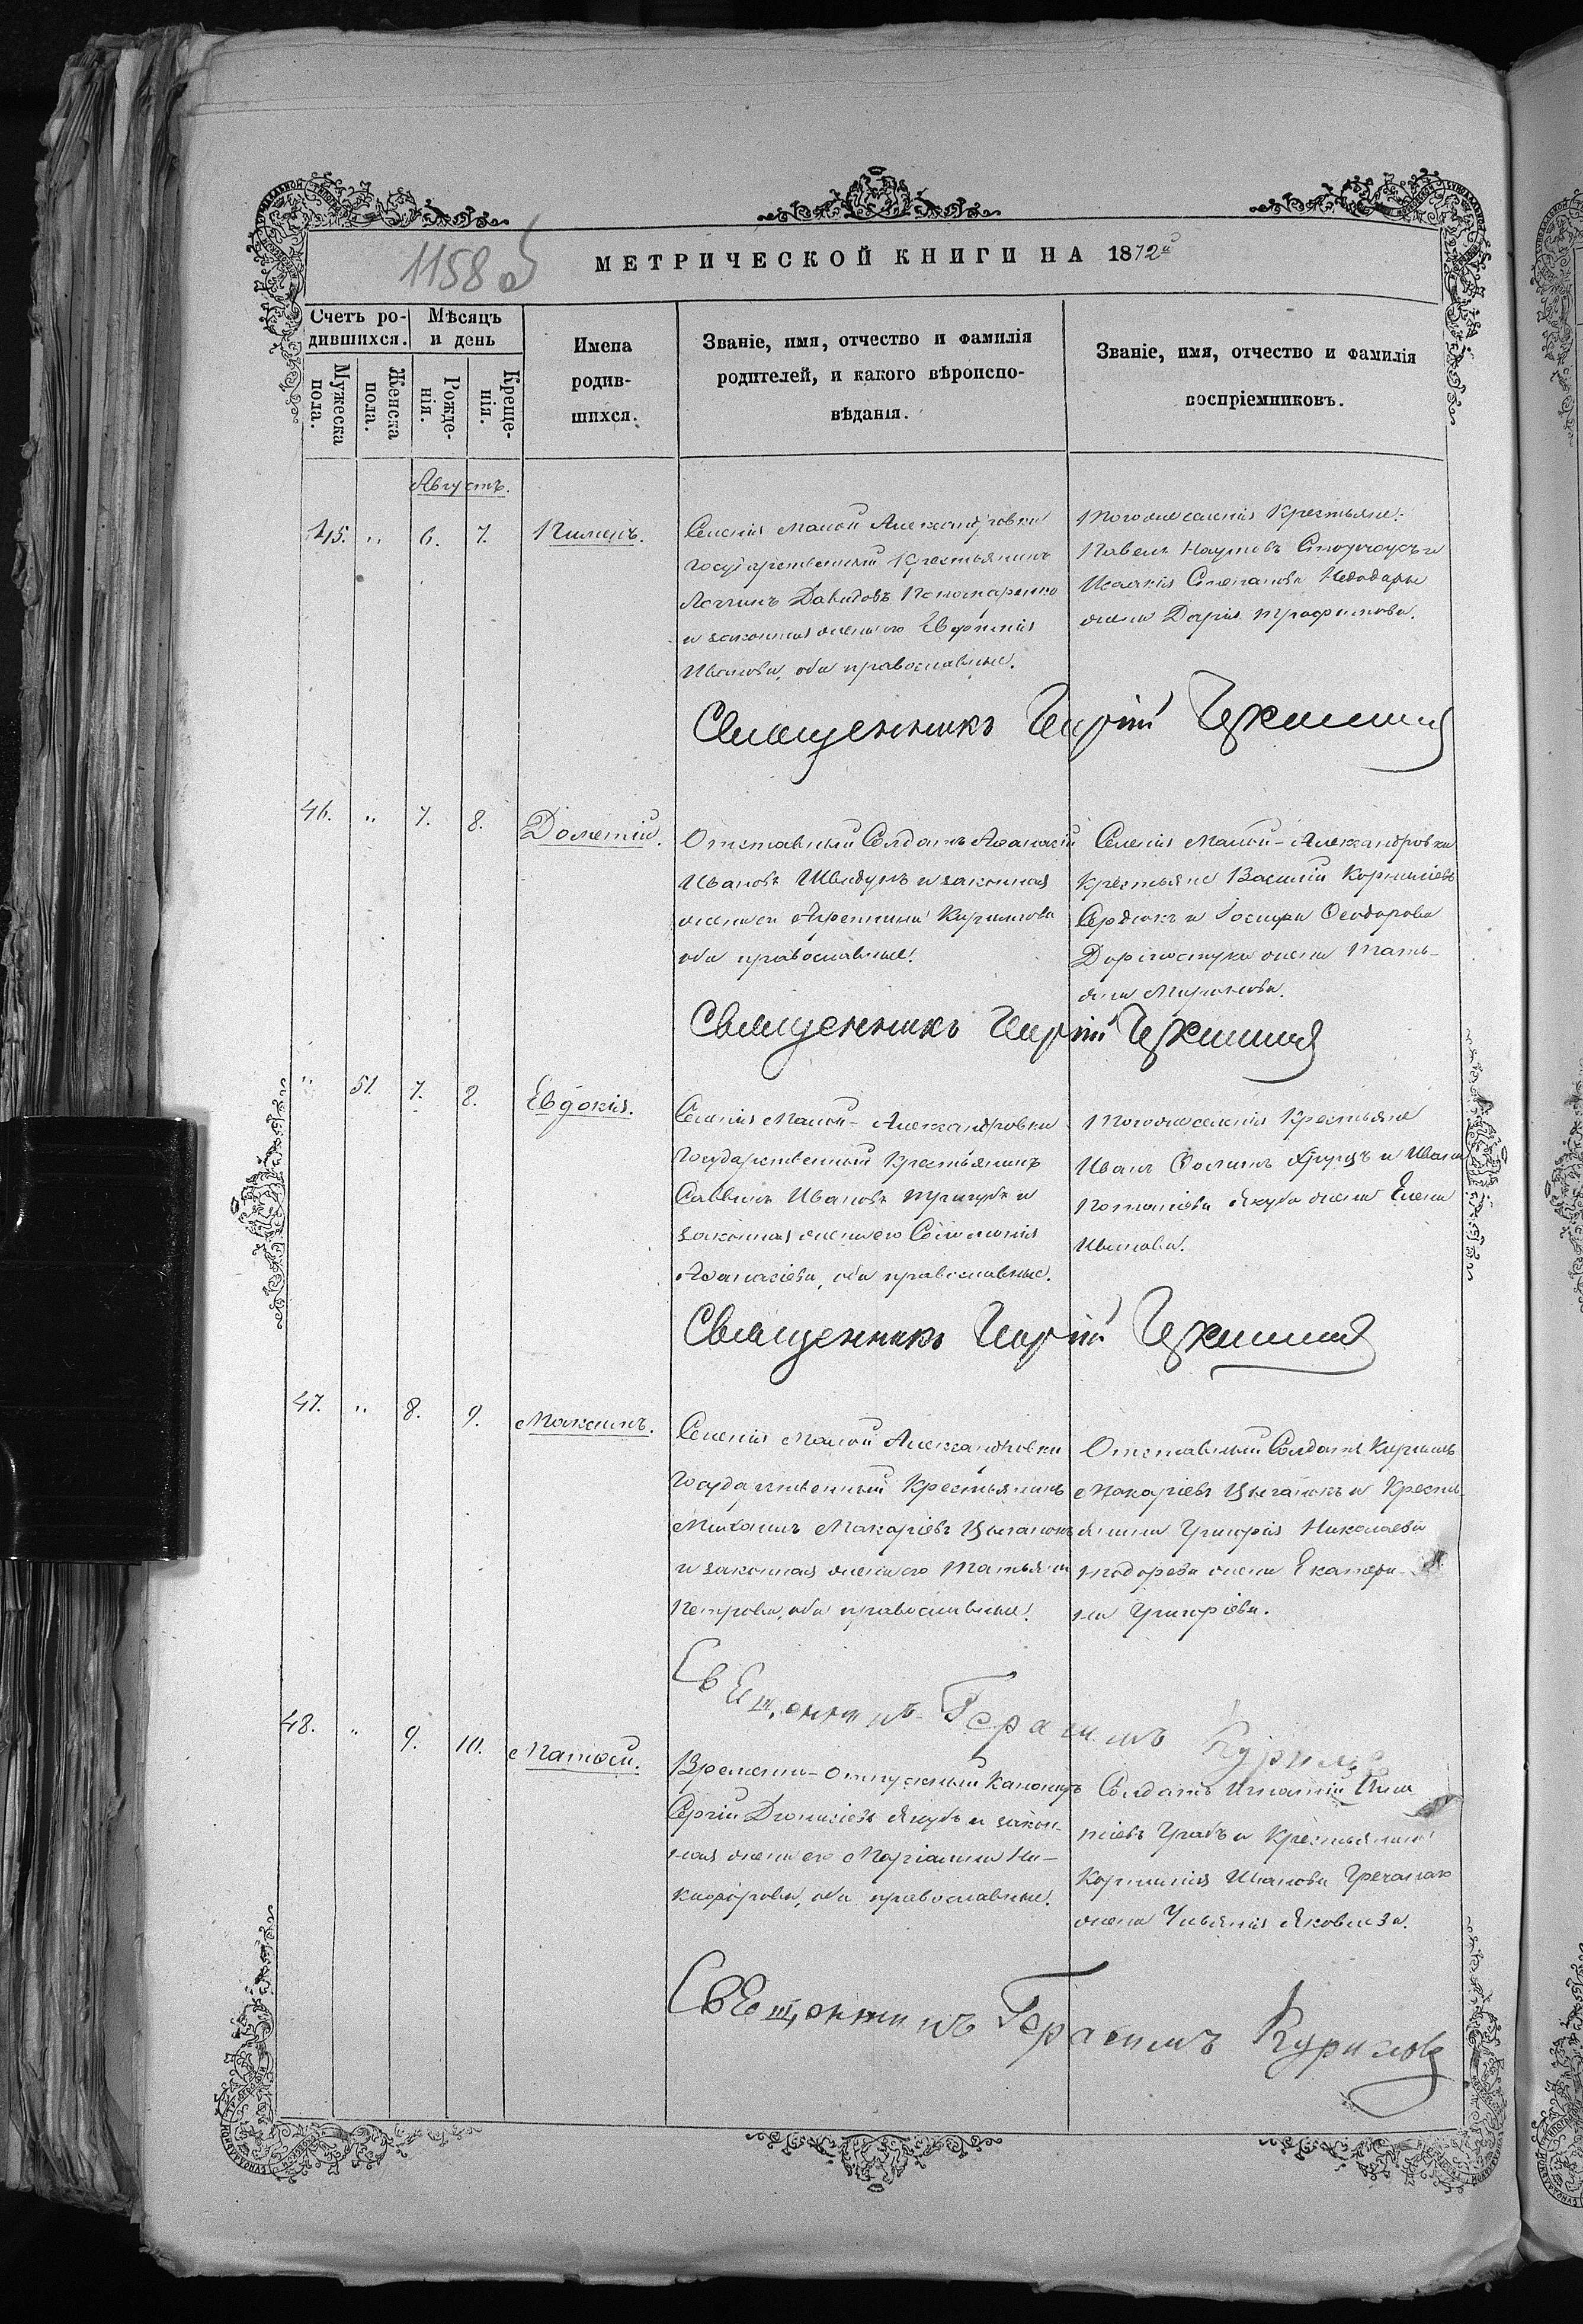 1158 об
МЕТРИЧЕСКОЙ КНИГИ НА 1872й
Счетъ ро-
дившихся.
Мужеска
пола.
Женска
пола.
Мѣсяцъ
и день
Рожде-
нія.
Креще-
нія.
Имена
родив-
шихся.
Званіе, имя, отчество и фамилія
родителей, и какого вѣроиспо-
вѣданія.
Званіе, имя, отчество и фамилія
воспріемниковъ.
Августъ.
45. " 6. 7. Пименъ.
Селенія Малой Александровки
государственный Крестьянинъ
Логгинъ Давидовъ Пономаренко
и законная жена его Евфимія
Иванова, оба православные.
Тогоже селенія Крестьяне:
Павелъ Наумовъ и
Исаакія Степанова
жена Дарія Трофимова.
Священникъ Георгій
46. " 7. 8. Дометій.
Отставный Солдатъ Аѳанасій
Ивановъ и законная
жена его Кирилова
оба православные.
Селенія Малой-Александровки
крестьяне Василій Корниліевъ
Сердюкъ и Іосифа Ѳеодорова
жена Тать-
яна Миронова.
Священникъ Георгій
" 51. 7. 8. Евдокія.
Селенія Малой-Александровки
Государственный Крестьянинъ
Савва Ивановъ Тригубъ и
законная жена его Соломонія
Аѳанасіева, оба православные.
Тогоже селенія Крестьяне
Иванъ Ѳоминъ и Ивана
Потапіева Якуба жена Елена
Иванова.
Священникъ Георгій
47. " 8. 9. Максимъ.
Селенія Малой Александровки
Государственный Крестьянинъ
Михаилъ Макаріевъ Цыганокъ
и законная жена его Татьяна
Петрова, оба православные.
Отставный Солдатъ Кирилъ
Макаріевъ Цыганокъ и Кресть-
янина Григорія Николаева
жена Екатери-
на Григоріева.
Свещенникъ Герасимъ Куриловъ
48. " 9. 10. Матѳей.
Временно-отпускный Канониръ
Сергій Діонисіевъ Якубъ и закон-
ная жена его Маріанна Ни-
кифорова, оба православные.
Солдатъ Игнатій
Грабъ и Крестьянина
Корнилія Иванова
жена Ульянія Яковлева.
Свещенникъ Герасимъ Куриловъ